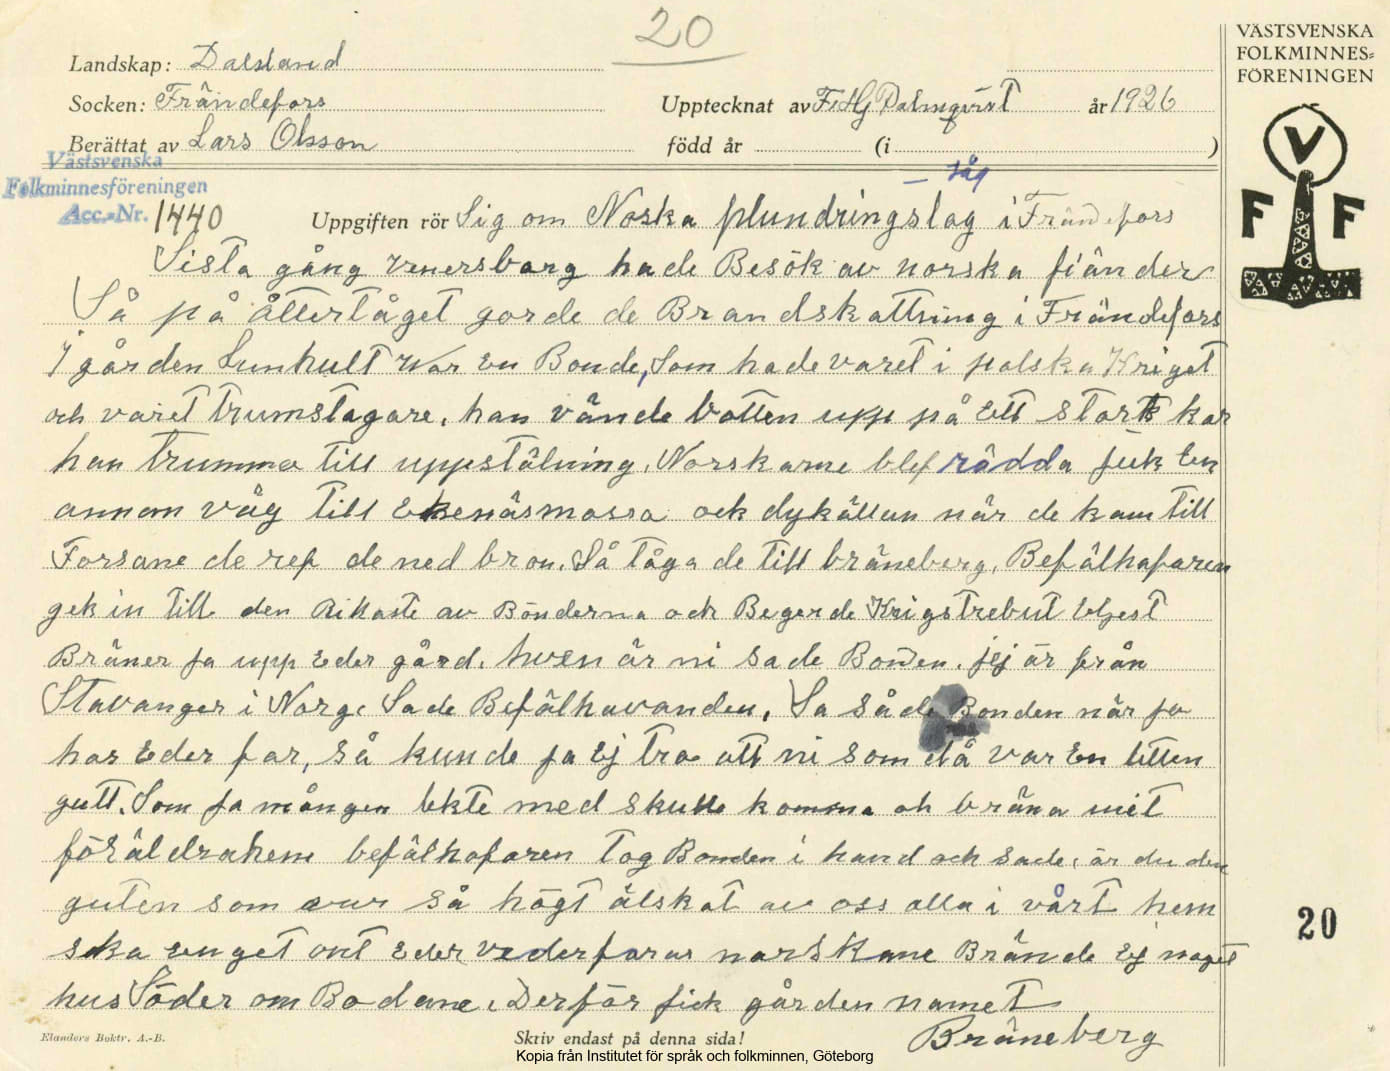 20
VÄSTSVENSKA
FOLKMINNES-
FÖRENINGEN
V
F F
Landskap: Dalsland
Socken: Frändefors
Upptecknat av F. Hj Palmqvist år 1926
Berättat av Lars Olsson
född år (i )
Västsvenska
Folkminnesföreningen
Acc.-Nr. 1440
— tåg
Uppgiften rör Sig om Norska plundringslag i Frändefors
Sista gång venersborg hade Besök av norska fiänder
Så på Åttertåget gorde de Brandskattning i Frändefors
I gården Lunhult war en Bonde, Som hade varet i polska Kriget
och varet trumslagare, han vände botten upp på Ett stort kar
han trumma till uppstälning. Norskarne blef rädda fick En
annan väg till Ekenäsmossa ock dykällan när de kam till
Forsane de ref de ned bron. Så tåga de till bräneberg. Befälhafaren
gek in till den Rikaste av Bönderna och Begerde Krigstrebut
Bräner ja upp Eder gård. hwen är ni sade Bonden. jej är från
Stavanger i Norge Sade Befälhavanden, Sa såde Bonden när ja
hos Eder far, så kunde ja Ej tro att ni som då var En litten
gutt. Som ja mången lekte med skulle komma oh bräna mit
föräldrahem befälhafaren tog Bonden i hand och sade, är du den
guten som var så högt älskat av oss alla i vårt hem
ska enget ont Eder vederfaras norskane Brände Ej noget
hus Söder om Bodane. Derför fick gården namet
Bräneberg
20
Elanders Boktr. A.-B.
Skriv endast på denna sida!
Kopia från Institutet för språk och folkminnen, Göteborg